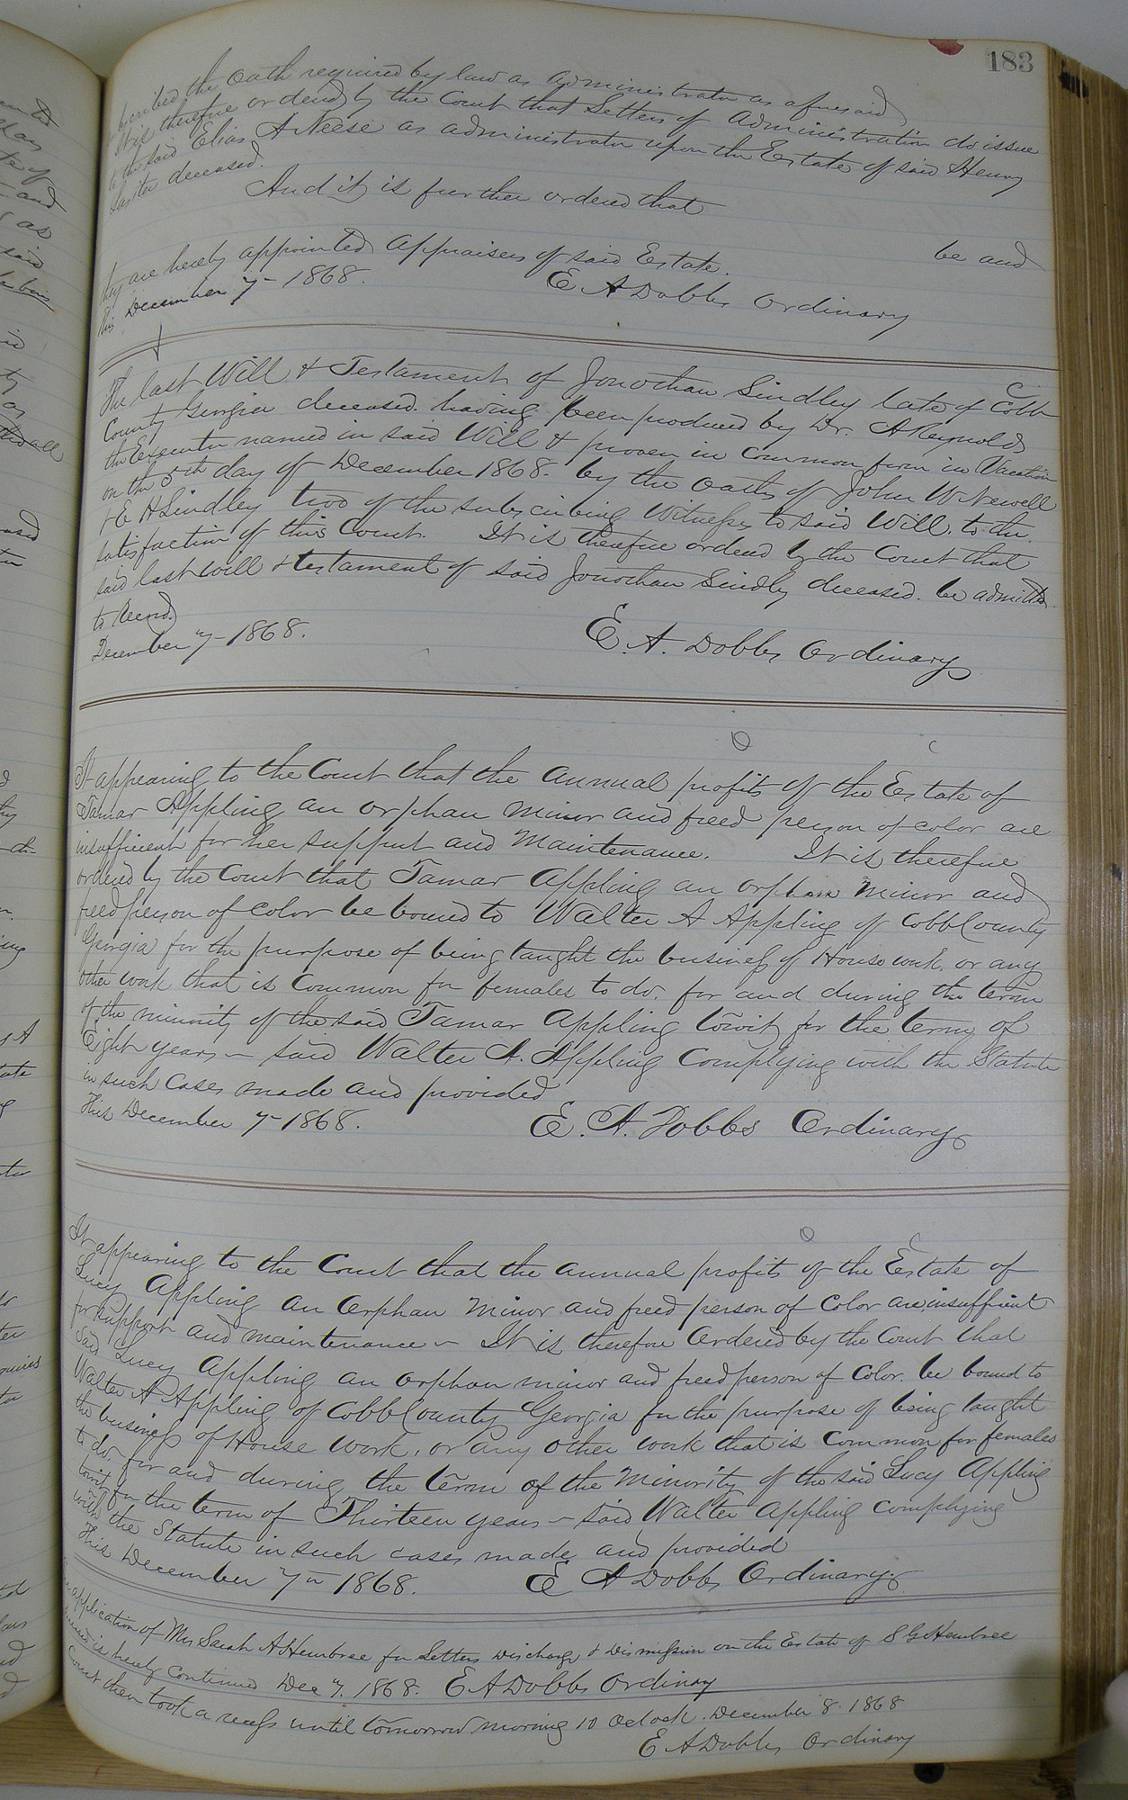 183
scribed the Oath required by law as administrator as aforesaid
It is therefore ordered by the Court that Letters of Administration do issue
to the said Elias A Neese as administrator upon the Estate of said Henry
deceased.
And it is further ordered that
be and
they are hereby appointed Appraisers of said Estate.
This December 7- 1868. E A Dobbs Ordinary
The last Will & Testament of Jonothan Lindley late of Cobb
County Georgia deceased. having been produced by Dr. A Reynolds
the Executor named in said Will & proven in common form in Vacation
on the 5th day of December 1868. by the oaths of John W Newell
& E H Lindley two of the subscribing Witnesses to said Will. to the
satisfaction of this Court. It is therefore ordered by the Court that
said last will & testament of said Jonothan Lindly deceased. be admitted
to Record.
December 7- 1868. E. A. Dobbs Ordinary
It appearing to the Court that the annual profits of the Estate of
Tamar Appling an orphan minor and freed person of color are
insufficient for her support and maintenance. It is therefore
ordered by the Court that Tamar Appling an orphan minor and
freed person of color be bound to Walter A Appling of Cobb County
Georgia for the purpose of being taught the business of House work, or any
other work that is Common for females to do. for and during the term
of the minority of the said Tamar Appling towit, for the term of
Eight years - said Walter A. Appling complying with the Statute
in such cases made and provided
This December 7- 1868. E. A. Dobbs Ordinary
It appearing to the Court that the annual profits of the Estate of
Lucy Appling an Orphan minor and freed person of Color are insufficient
for support and maintenance - It is therefore Ordered by the Court that
said Lucy Appling an orphan minor and freed person of Color. be bound to
Walter A Appling of Cobb County Georgia for the purpose of being taught
the business of House work, or any other work that is common for females
to do. for and during the term of the minority of the said Lucy Appling
towit, for the term of Thirteen years - said Walter Appling complying
with the Statute in such cases made and provided
This December 7th 1868. E A Dobbs Ordinary
application of Mrs Sarah A Hembree for Letters Discharge & Dismission on the Estate of S G Hembree
deceased is hereby continued Dec 7. 1868. E A Dobbs Ordinary
Court then took a recess until tomorrow morning 10 Oclock. December 8. 1868
E A Dobbs Ordinary